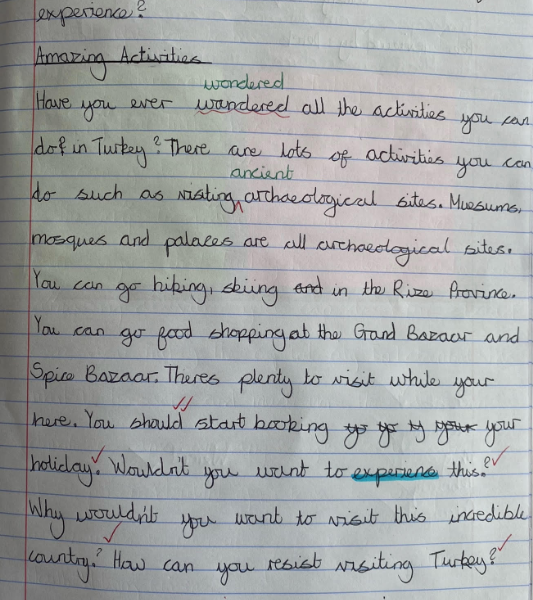 experience?
Amazing Activities
wondered
Have you ever wandered all the activities you can
do? in Turkey? There are lots of activities you can
ancient
do such as visiting archaeological sites. Muesums,
mosques and palaces are all archaeological sites.
You can go hiking, skiing and in the Rize Province.
You can go food shopping at the Grand Bazaar and
Spice Bazaar. Theres plenty to visit while your
here. You should start booking your
holiday. Wouldn't you want to experiens this?
Why wouldn't you want to visit this incredible
country? How can you resist visiting Turkey?